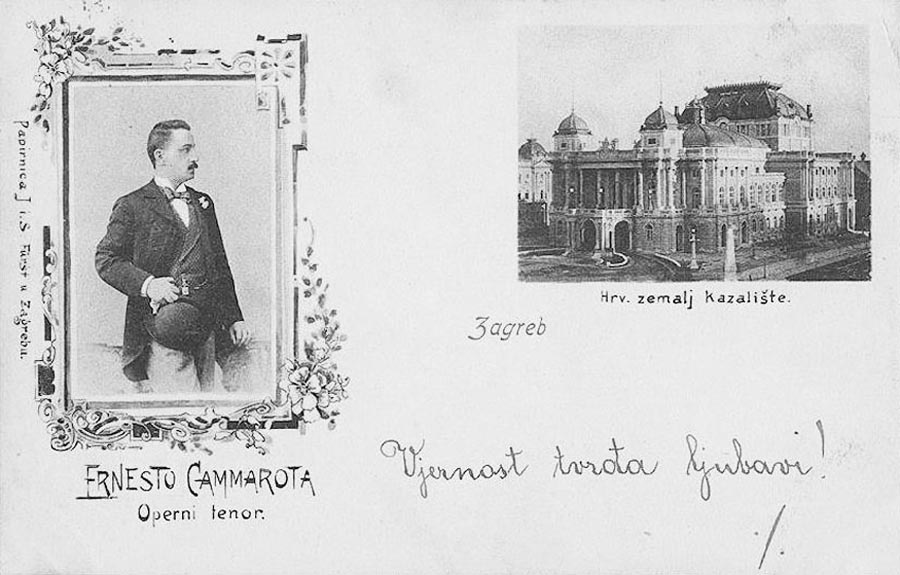 Papirnica J i. S Fürst u Zagrebu.
ERNESTO CAMMAROTA
Operni tenor.
Hrv. zemalj Kazalište.
Zagreb
Vjernost tvrđa ljubavi!
./.